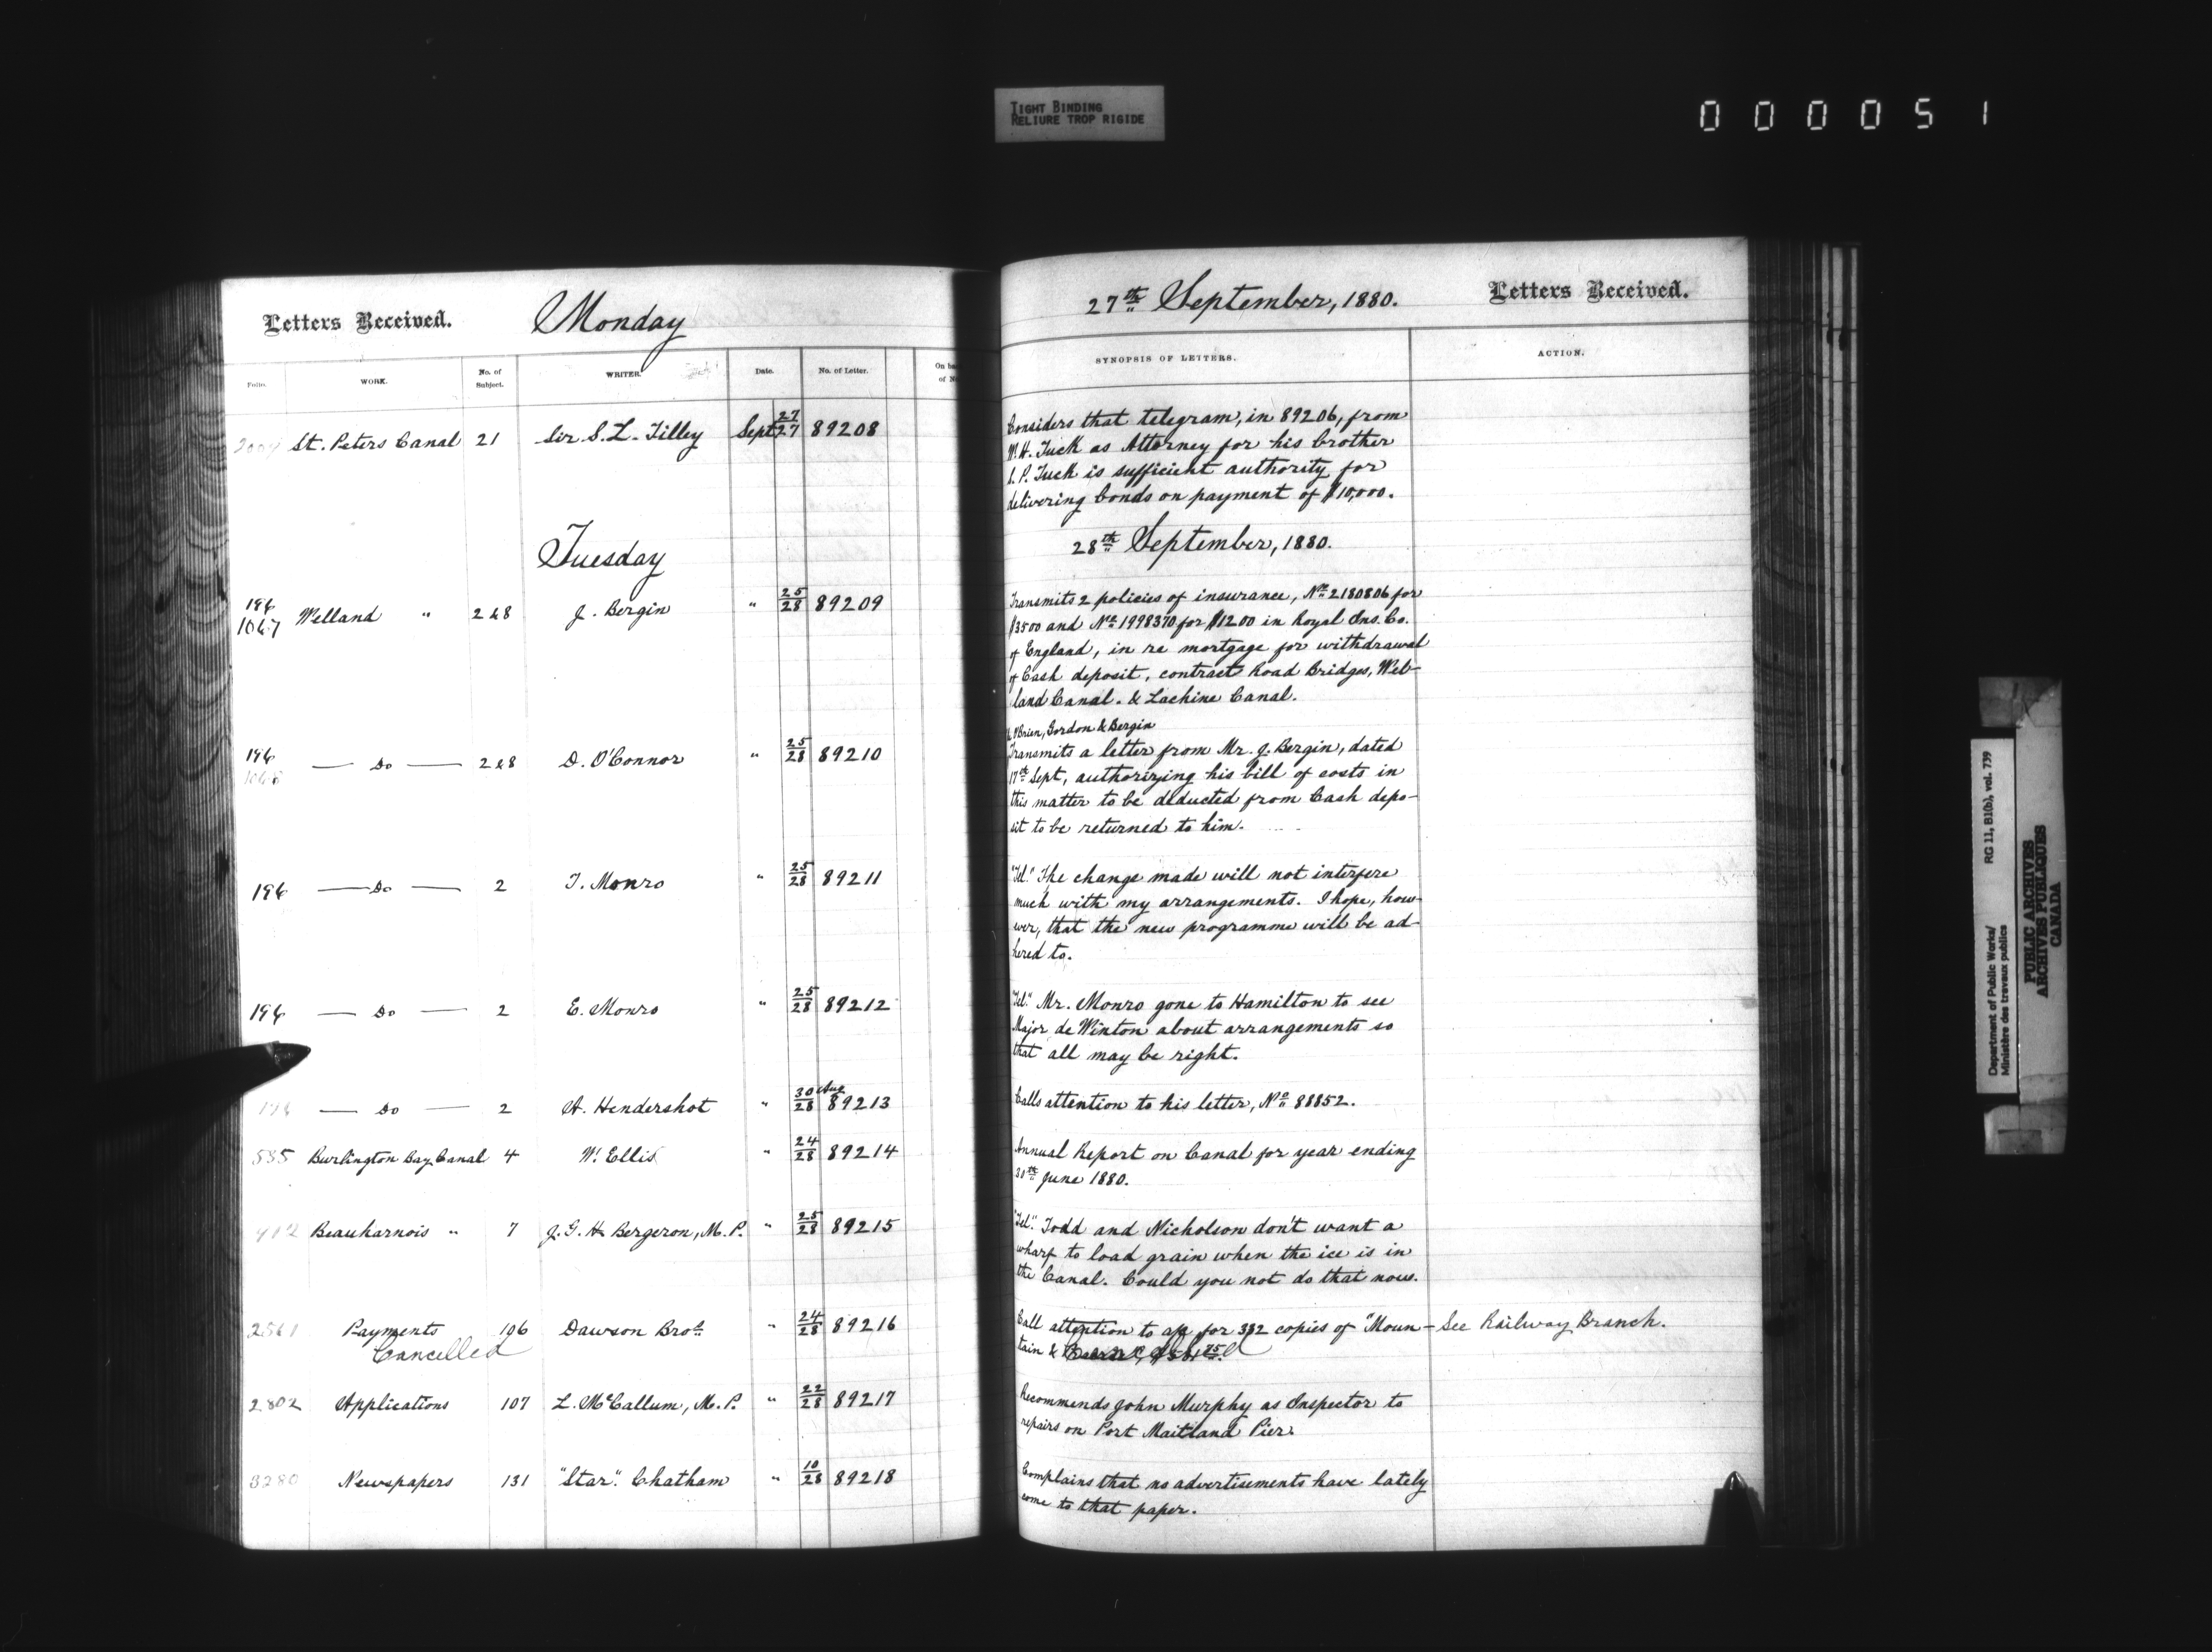 TIGHT BINDING
RELIURE TROP RIGIDE
0 0 0 0 5 1
Letters Received.
Monday
27th September, 1880.
Letters Received.
Folio.
WORK.
No. of Subject.
WRITER.
Date.
No. of Letter.
SYNOPSIS OF LETTERS.
ACTION.
St. Peters Canal 21 Sir S. L. Tilley Sept 27/27 89208
Considers that telegram, in 89206, from
W. H. Tuck as Attorney for his brother
P. Tuck is sufficient authority for
delivering bonds on payment of $10,000.
Tuesday
28th September, 1880.
196
1067 Welland " 2&8 J. Bergin " 25/28 89209
Transmits 2 policies of insurance, No. 2180806 for
$3500 and No. 1998370 for $1200 in Royal Ins. Co.
of England, in re mortgage for withdrawal
of Cash deposit, contract Road Bridges, Wel-
land Canal. & Lachine Canal.
196
1068 — Do — 2&8 D. O'Connor " 25/28 89210
O'Brien, Gordon & Bergin
Transmits a letter from Mr. J. Bergin, dated
17th Sept, authorizing his bill of costs in
this matter to be deducted from Cash depo-
sit to be returned to him.
196 — Do — 2 T. Monro " 25/28 89211
"Tel." The change made will not interfere
much with my arrangements. I hope, how-
ever, that the new programme will be ad-
hered to.
196 — Do — 2 E. Monro " 25/28 89212
"Tel." Mr. Monro gone to Hamilton to see
Major de Winton about arrangements so
that all may be right.
196 — Do — 2 A. Hendershot " 30 Aug/28 89213
Calls attention to his letter, No. 88852.
535 Burlington Bay Canal 4 W. Ellis " 24/28 89214
Annual Report on Canal for year ending
30th June 1880.
412 Beauharnois " 7 J. G. H. Bergeron, M. P. " 25/28 89215
"Tel." Todd and Nicholson don't want a
wharf to load grain when the ice is in
the Canal. Could you not do that now.
2561 Payments 106 Dawson Bros. " 24/28 89216
Cancelled
Call attention to a/c for 332 copies of "Moun-
tain &
See Railway Branch.
2802 Applications 107 L. McCallum, M. P. " 22/28 89217
Recommends John Murphy as Inspector to
repairs on Port Maitland Pier.
3280 Newspapers 131 "Star." Chatham " 10/28 89218
Complains that no advertisements have lately
come to that paper.
Department of Public Works/
Ministère des travaux publics
RG 11, B1(b), vol. 739
PUBLIC ARCHIVES
ARCHIVES PUBLIQUES
CANADA